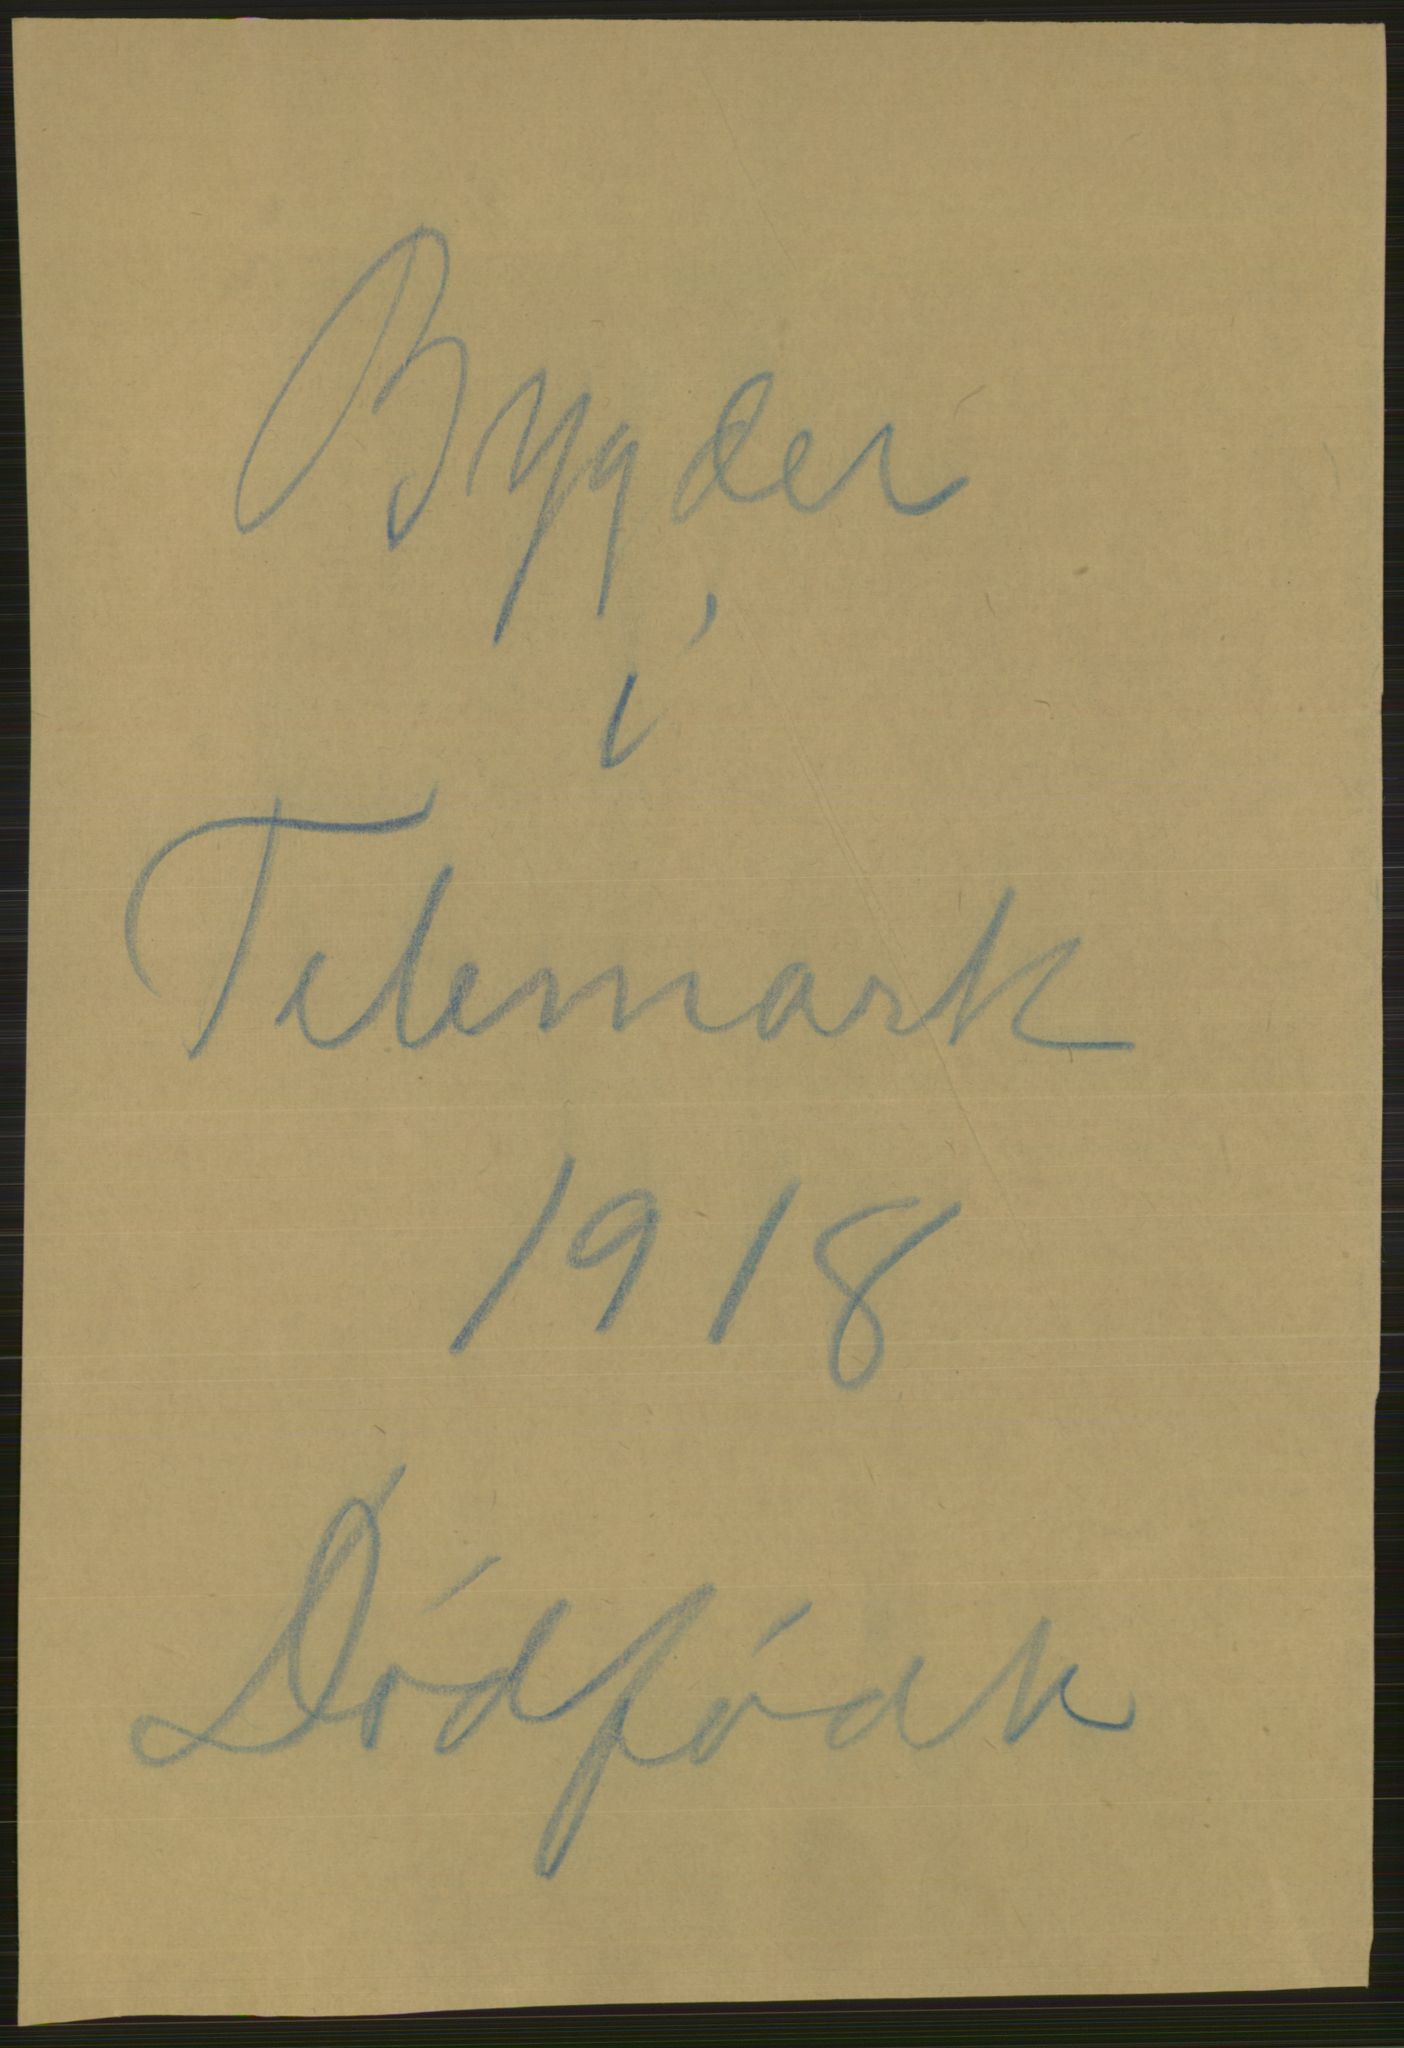 Bygder
i
Telemark
1918
Dødfødte